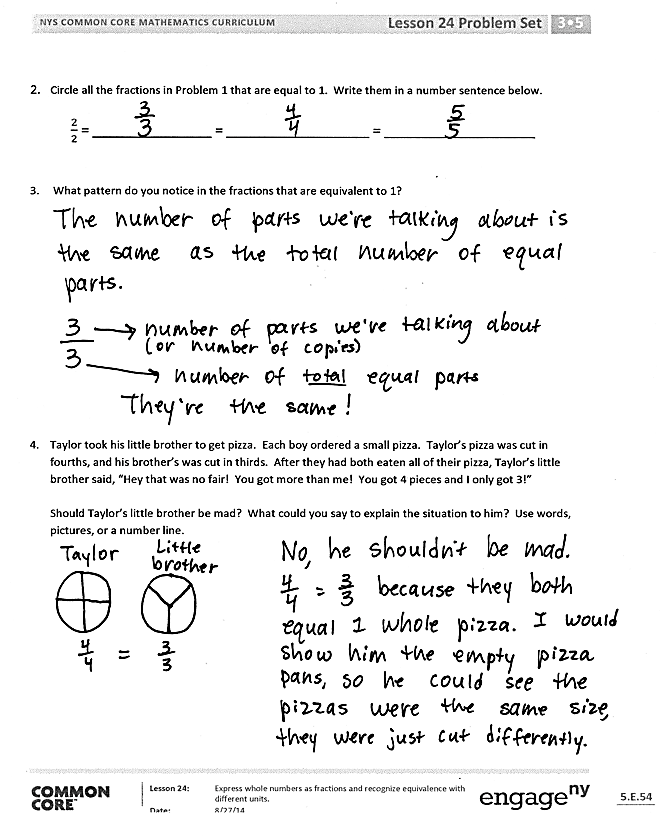 NYS COMMON CORE MATHEMATICS CURRICULUM Lesson 24 Problem Set 3•5
2. Circle all the fractions in Problem 1 that are equal to 1. Write them in a number sentence below.
2/2 = 3/3 = 4/4 = 5/5
3. What pattern do you notice in the fractions that are equivalent to 1?
The number of parts we're talking about is
the same as the total number of equal
parts.
3/3 → number of parts we're talking about
(or number of copies)
→ number of total equal parts
They're the same!
4. Taylor took his little brother to get pizza. Each boy ordered a small pizza. Taylor's pizza was cut in
fourths, and his brother's was cut in thirds. After they had both eaten all of their pizza, Taylor's little
brother said, "Hey that was no fair! You got more than me! You got 4 pieces and I only got 3!"
Should Taylor's little brother be mad? What could you say to explain the situation to him? Use words,
pictures, or a number line.
Taylor Little
brother
4/4 = 3/3
No, he shouldn't be mad.
4/4 = 3/3 because they both
equal 1 whole pizza. I would
show him the empty pizza
pans, so he could see the
pizzas were the same size,
they were just cut differently.
COMMON
CORE™
Lesson 24: Express whole numbers as fractions and recognize equivalence with
different units.
Date: 8/27/14
engage ny
5.E.54